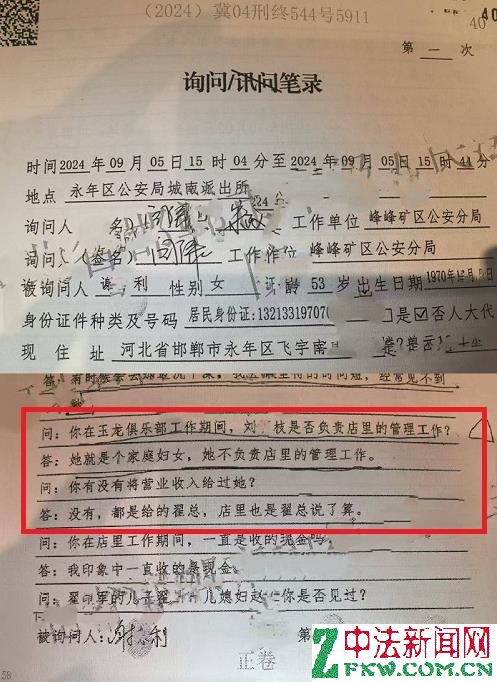 (2024)冀04刑终544号5911
40
40
第 一 次
询问/讯问笔录
时间2024年09月05日15时04分至2024年09月05日15时44分
地点 永年区公安局城南派出所
询问人 名) 工作单位 峰峰矿区公安分局
(签名) 工作单位 峰峰矿区公安分局
被询问人 利 性别 女 龄 53 岁 出生日期 1970年
身份证件种类及号码 居民身份证:13213319707 □是☑否人大代
现住址 河北省邯郸市永年区飞宇南
问:你在玉龙俱乐部工作期间,刘 枝是否负责店里的管理工作?
答:她就是个家庭妇女,她不负责店里的管理工作。
问:你有没有将营业收入给过她?
答:没有,都是给的翟总,店里也是翟总说了算。
问:你在店里工作期间,一直是收的现金吗
答:我印象中一直收的是现金
问:翟 里的儿子翟 儿媳妇赵 你是否见过?
被询问人: 利 第
正卷
58
中法新闻网
ZFKW.COM.CN